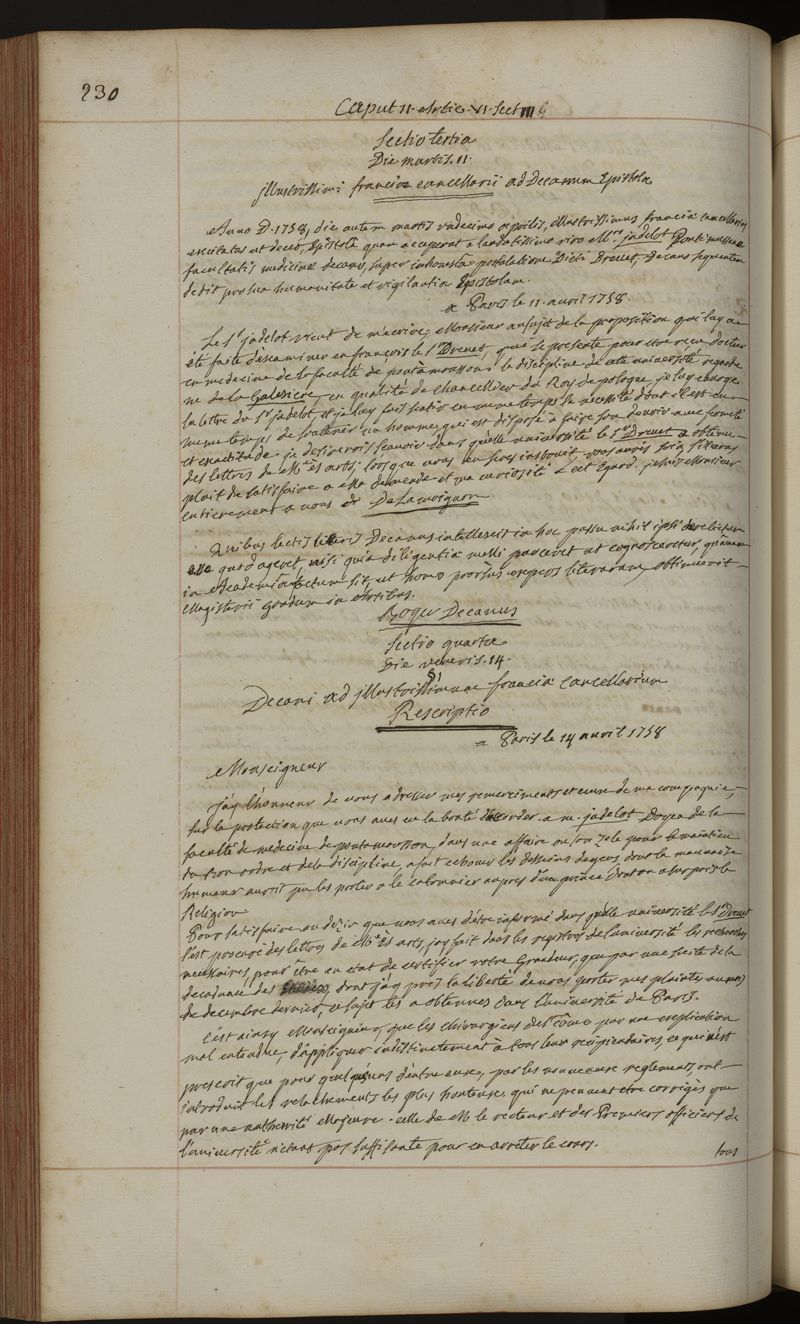 230
Caput II. Artic. VI. Sect III
Sectio tertia
Die martis. 11.
jllustrissimi franciæ cancellarii ad Decanum Epistola
Anno D. 1758, die autem martis undecimo aprilis, illustrissimus franciæ cancellarius
excitatus ut decet, Epistolâ quam acceperat a laudatissimo viro Mro. jadelot Ponti mussanæ
facultatis medicinæ decano, super inhonestâ postulatione Dicti Drouet, Decano sequentem
dedit pro sua humanitate et vigilantia Epistolam.
a Paris le 11. avril 1758.
Le Sr. jadelot vient de m'ecrire, Monsieur au sujet de la proposition qui luy a
été faite d'examiner en françois le Sr. Drouet, qui se presente pour être reçu docteur
en medecine de la faculté de pontàmousson: la discipline de cette université regarde
m. de la Galesiere, en qualité de chancellier du Roy de pologne, je luy envoye
la lettre du Sr. jadelot et je luy fais sentir en meme temps la necessité dont il est en
meme temps de soutenir un homme, qui est disposé a faire son devoir avec fermeté
et exactitude. je desirerois sçavoir dans quelle université le Sr. Drouet a obtenu
des lettres de Me. ès arts; lorsque vous en serés instruit, vous aurés soin s'il vous
plait de satisfaire a ma demande et ma curiosité a cet egard. je suis Monsieur
entierement a vous De Lamoignon
Quibus lectis litteris Decanus intellexit in hoc passu nihil ipsi derelictum
esse quod ageret, nisi quia diligentiâ nulli parceret ut cognosceretur, quânam
in Academiâ factum sit, ut homo prorsùs expers literarum, obtinuerit
Magisterii gradum in Artibus.
Boyer Decanus
Sectio quarta
Die veneris. 14.
Decani ad jllustrissimum franciæ Cancellarium
Rescriptio
a Paris le 14 avril 1758
Monseigneur
j'ay l'honneur de vous adresser mes remerciments et ceux de ma compagnie,
sur la protection que vous aves eu la bonté d'accorder a m. jadelot Doyen de la
faculté de medecine de pontamousson, dans une affaire ou son zele pour le maintien
du bon ordre et de la discipline, a fait echouer les desseins de gens, dont la mauvaise
humeur auroit pu les porter a le calomnier aupres d'un prince dont on a surpris la
Religion
Pour satisfaire au desir que vous aues d'être informé dans quelle université le Sr. Drouet
s'est procuré des lettres de Me. ès arts, j'ay fait dans les registres de l'université les recherches
necessaires, pour être en etat de certifier votre Grandeur, que par une suite de la
decadence des dont j'ay pris la liberté de vous porter mes plaintes au mois
de decembre dernier, ce sujet les a obtenues dans l'université de Paris.
C'est ainsy Monseigneur, que les chirurgiens de St. Côme par une explication
mal entendue, d'appliquer indistinctement à tous leurs recipiendaires, ce qui n'est
prescrit que pour quelques uns d'entre eux, par les nouveaux reglements ont
introduit les relachements les plus honteux qui ne peuvent etre corrigés que
par une authorité Majeure. celle de M le recteur et des Premiers officiers de
l'université n'etant pas suffisante pour en arrêter le cours.
tous